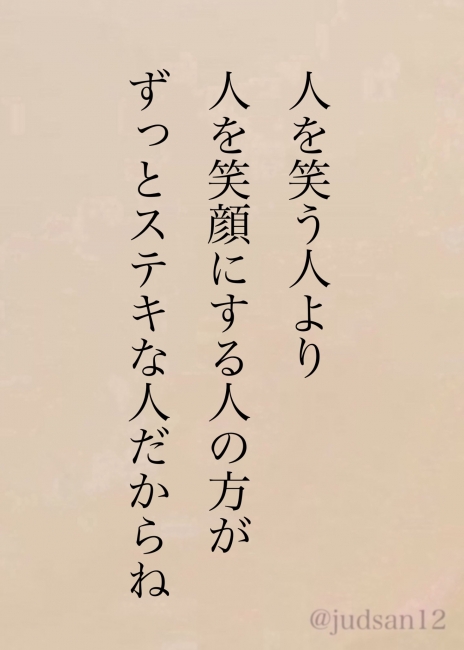 人を笑う人より
人を笑顔にする人の方が
ずっとステキな人だからね
@judsan12